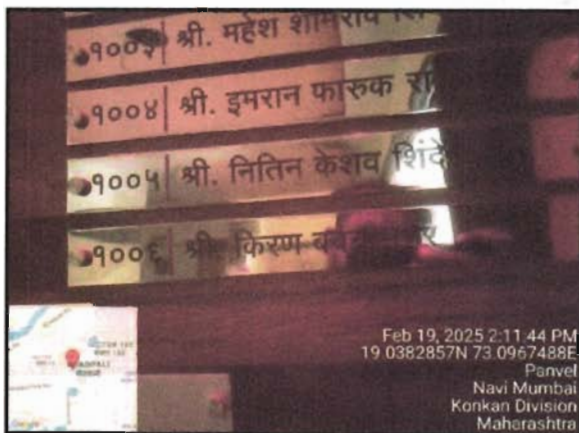 १००३ श्री. महेश शामराव
१००४ श्री. इमरान फारुक
१००५ श्री. नितिन केशव शिंदे
१००६ श्री. किरण
Feb 19, 2025 2:11:44 PM
19.0382857N 73.0967488E
Panvel
Navi Mumbai
Konkan Division
Maharashtra